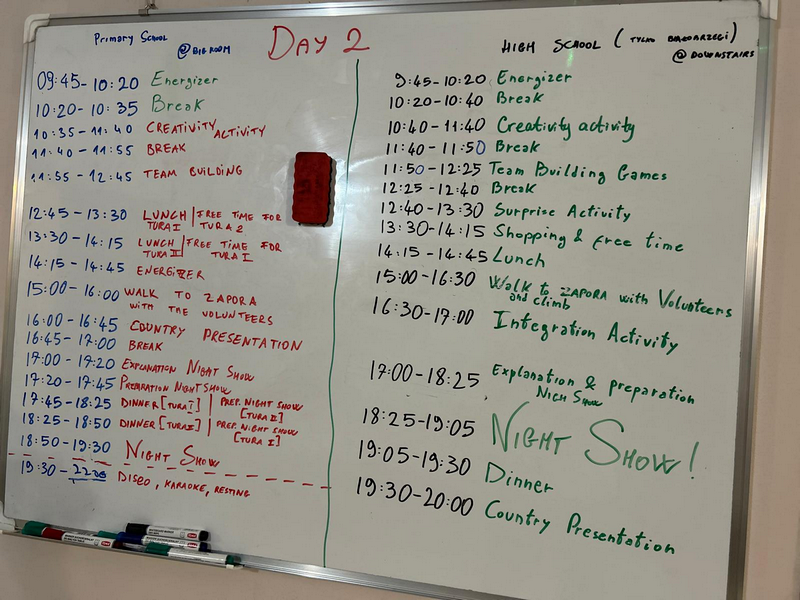 DAY 2
Primary School
@ BIG ROOM
09:45-10:20 Energizer
10:20-10:35 Break
10:35-11:40 CREATIVITY ACTIVITY
11:40-11:55 BREAK
11:55-12:45 TEAM BUILDING
12:45-13:30 LUNCH | FREE TIME FOR
TURA I | TURA 2
13:30-14:15 LUNCH | FREE TIME FOR
TURA II | TURA I
14:15-14:45 ENERGIZER
15:00-16:00 WALK TO ZAPORA
WITH THE VOLUNTEERS
16:00-16:45 COUNTRY PRESENTATION
16:45-17:00 BREAK
17:00-17:20 EXPLANATION NIGHT SHOW
17:20-17:45 PREPARATION NIGHT SHOW
17:45-18:25 DINNER [TURA I] | PREP. NIGHT SHOW
[TURA II]
18:25-18:50 DINNER [TURA II] | PREP. NIGHT SHOW
[TURA I]
18:50-19:30 NIGHT SHOW
19:30-22:00 DISCO, KARAOKE, RESTING
HIGH SCHOOL (TYLKO BIAŁOBRZEGI)
@ DOWNSTAIRS
9:45-10:20 Energizer
10:20-10:40 Break
10:40-11:40 Creativity activity
11:40-11:50 Break
11:50-12:25 Team Building Games
12:25-12:40 Break
12:40-13:30 Surprise Activity
13:30-14:15 Shopping & free time
14:15-14:45 Lunch
15:00-16:30 Walk to ZAPORA with Volunteers
and climb
16:30-17:00 Integration Activity
17:00-18:25 Explanation & preparation
NIGH SHOW
18:25-19:05 NIGHT SHOW!
19:05-19:30 Dinner
19:30-20:00 Country Presentation